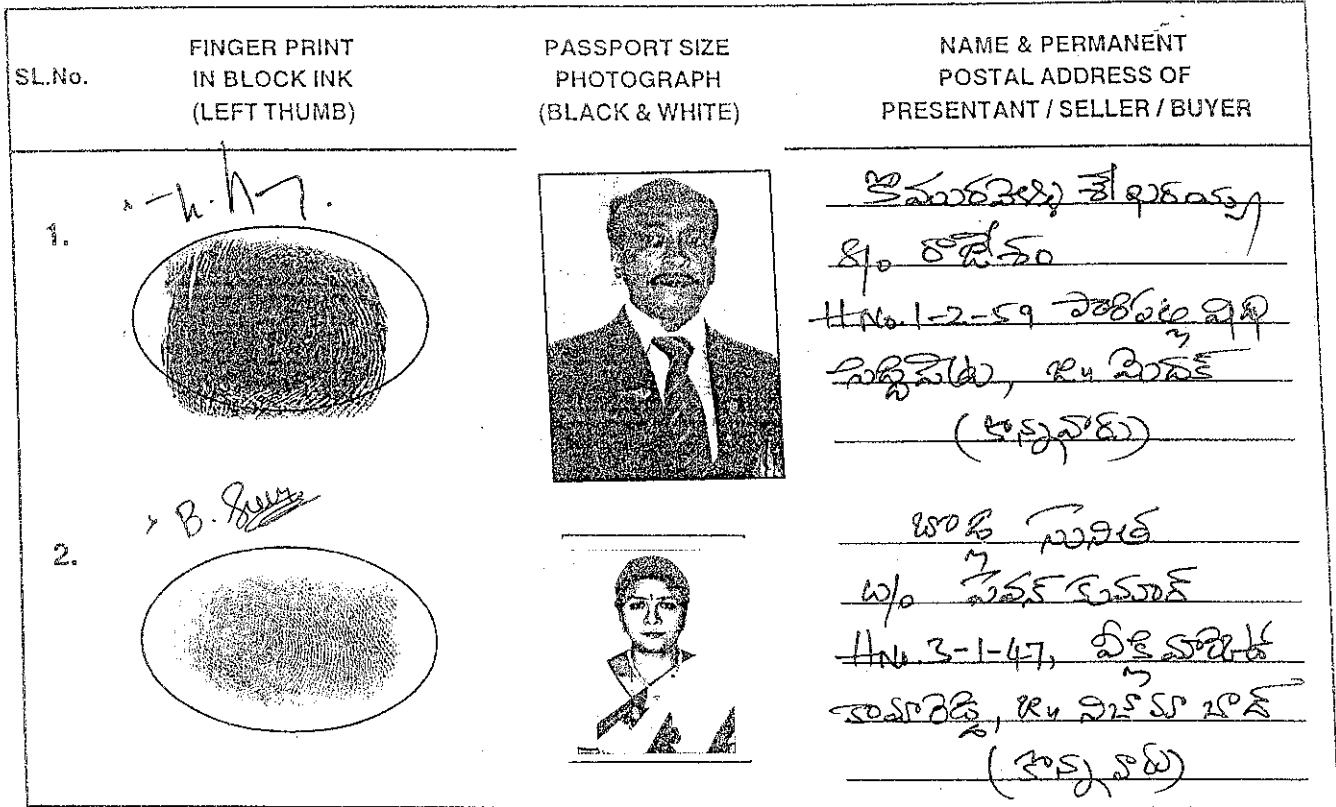 SL.No.
FINGER PRINT
IN BLOCK INK
(LEFT THUMB)
PASSPORT SIZE
PHOTOGRAPH
(BLACK & WHITE)
NAME & PERMANENT
POSTAL ADDRESS OF
PRESENTANT / SELLER / BUYER
1.
కొమురవెళ్ళి శేఖరయ్య
S/o రాజేశం
H.No. 1-2-59
సిద్దిపేట, జి॥ మెదక్
(కొన్నవారు)
2.
B.
సునీత
W/o పవన్ కుమార్
H.No. 3-1-47,
కామారెడ్డి, జి॥ నిజామాబాద్
(కొన్నవారు)